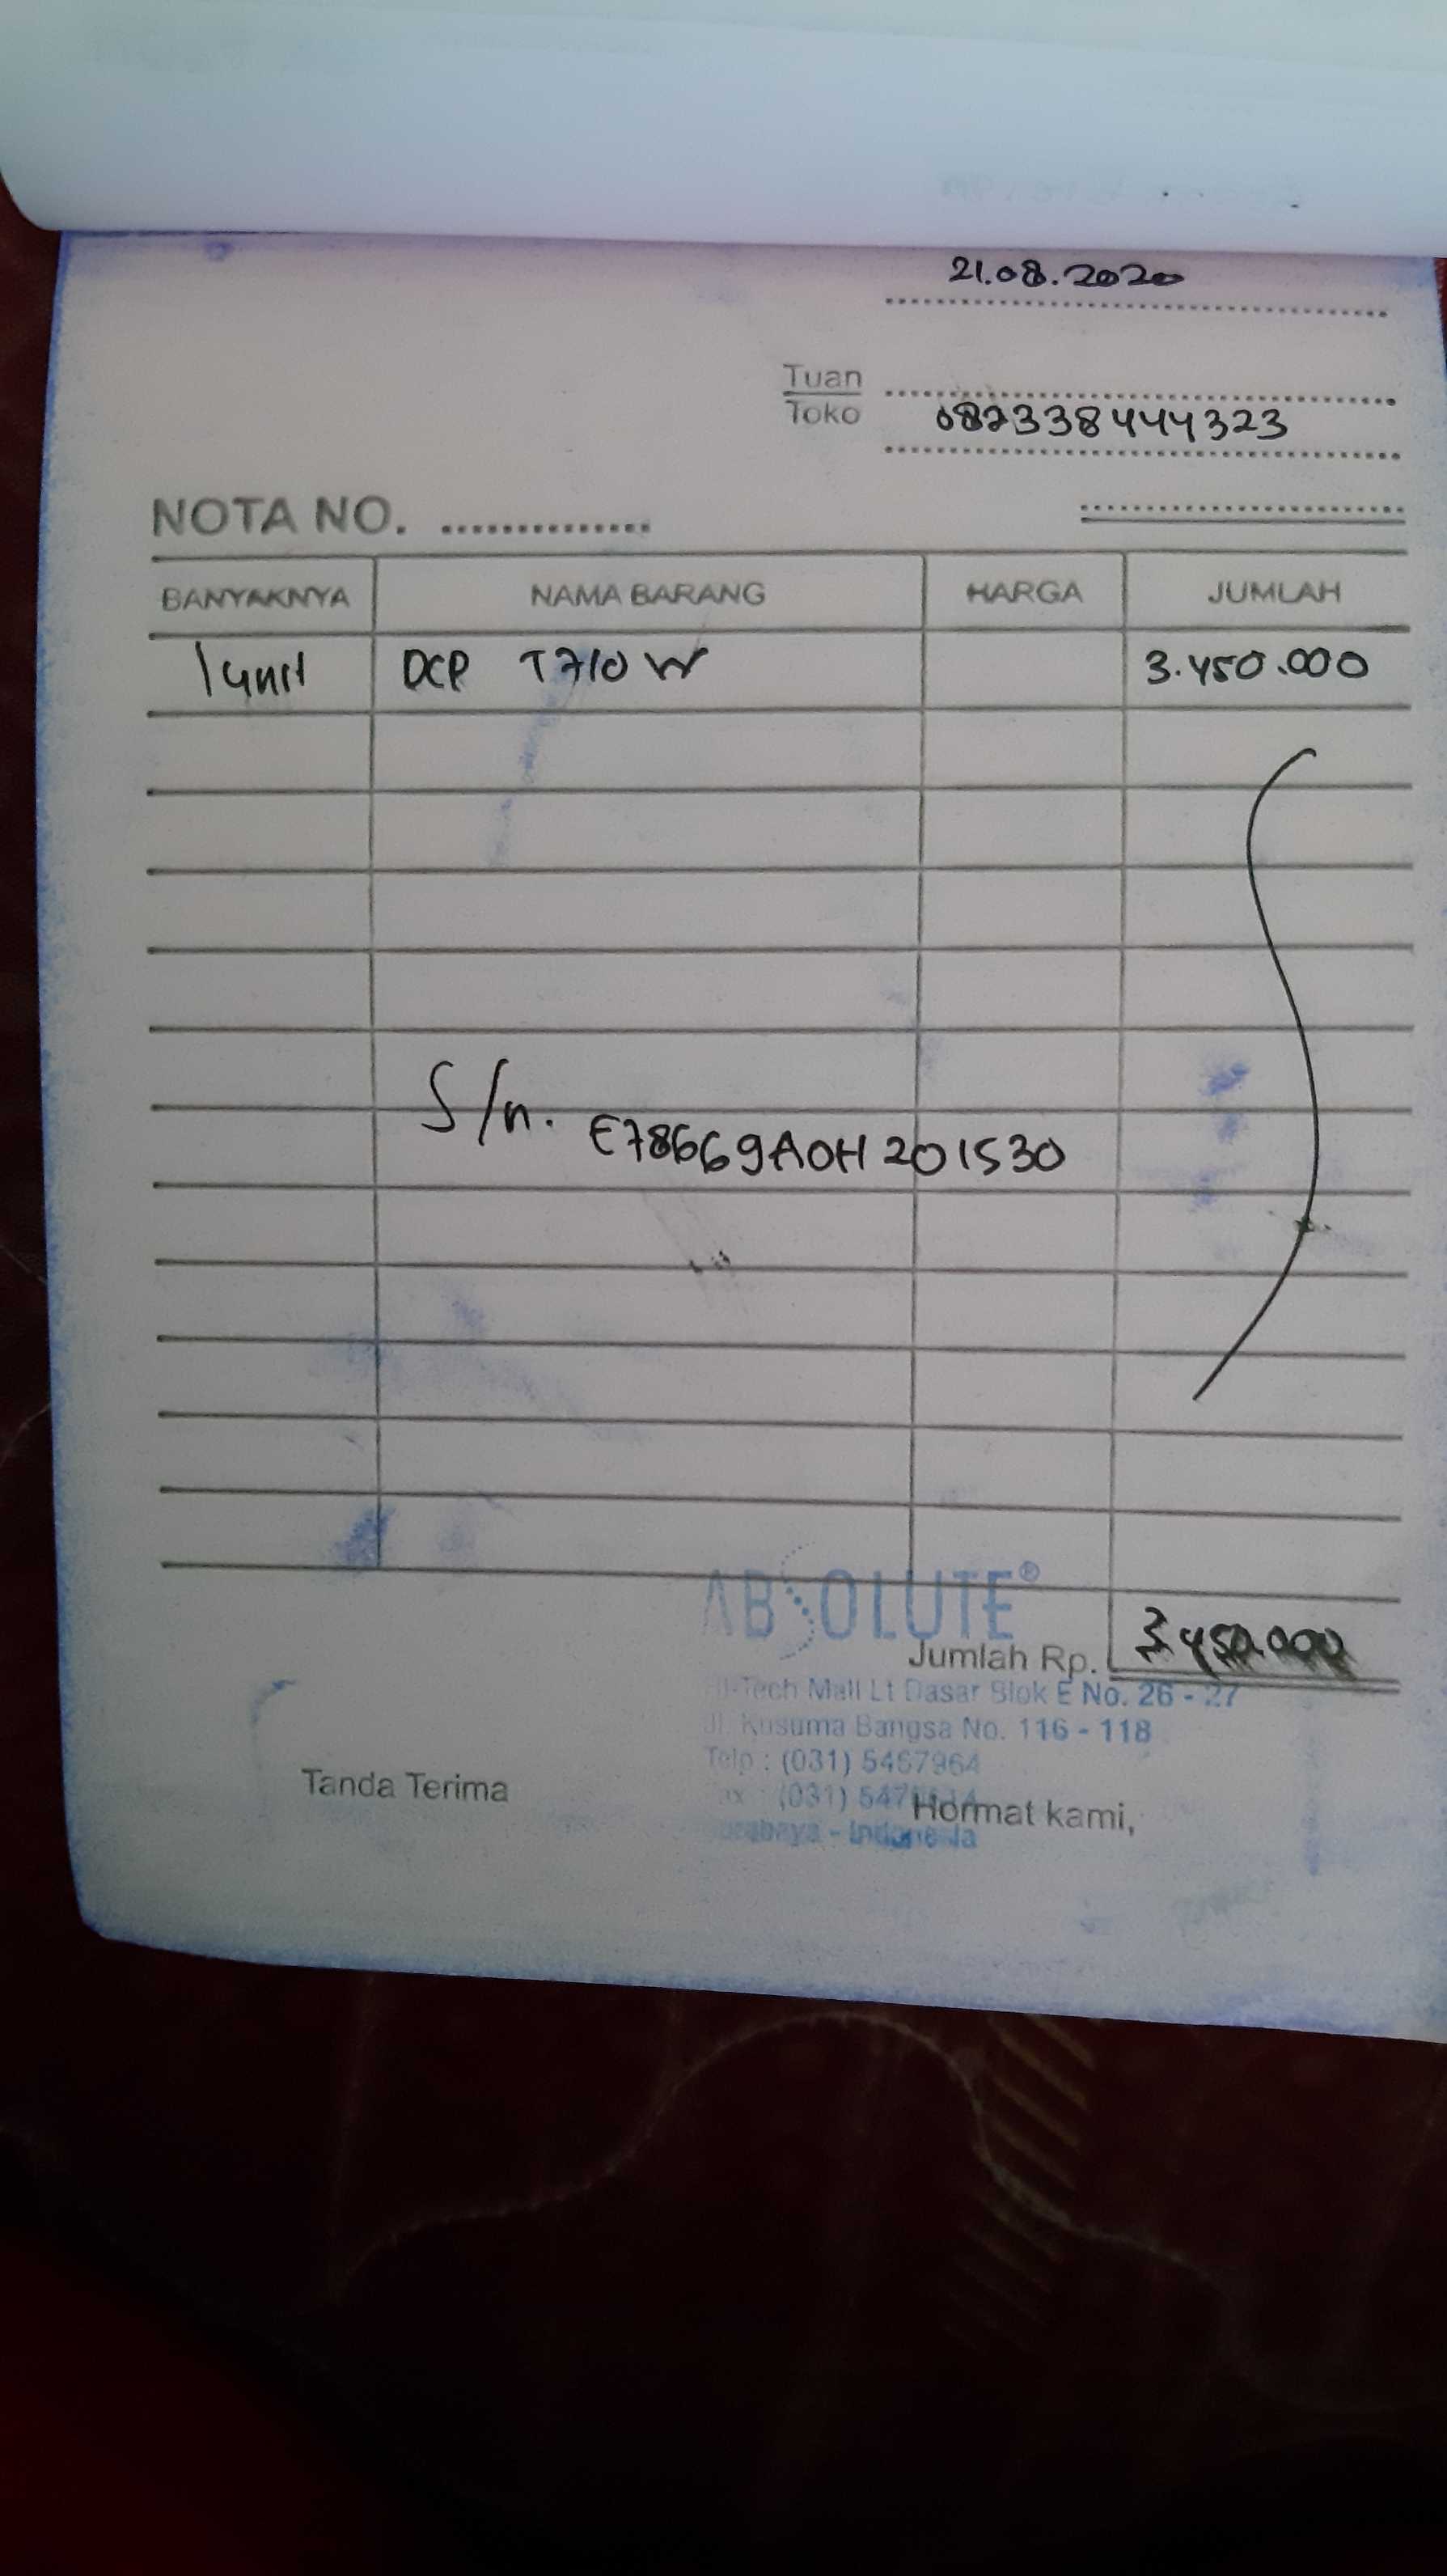 21.08.2020
Tuan
Toko 082338444323
NOTA NO. ..............
BANYAKNYA NAMA BARANG HARGA JUMLAH
1 unit DCP T710W 3.450.000
S/n. E78669A0H201530
ABSOLUTE®
Jumlah Rp. 3.450.000
Hi-Tech Mall Lt Dasar Blok E No. 26 - 27
Jl. Kusuma Bangsa No. 116 - 118
Telp : (031) 5467964
Fax : (031)
Tanda Terima Hormat kami,
Surabaya - Indonesia